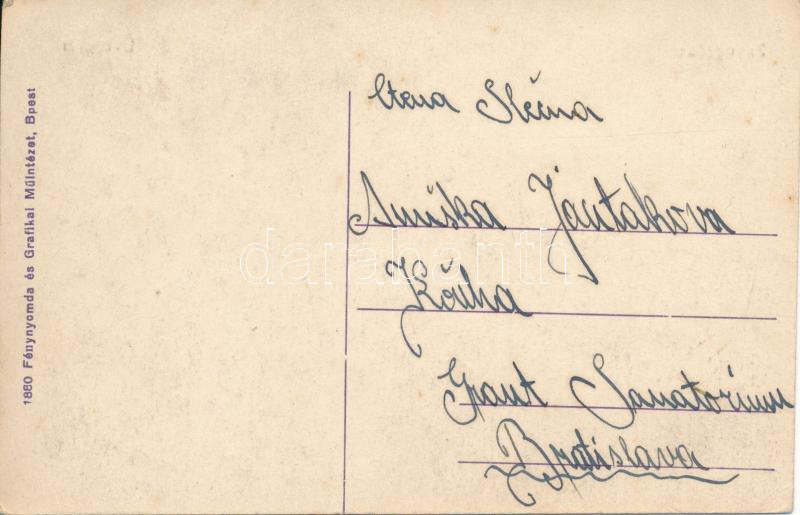 1880 Fénynyomda és Grafikai Műintézet, Bpest
Ctena Slečna
Anuška Jantakova
Grant Sanatorium
Bratislava
darabanth